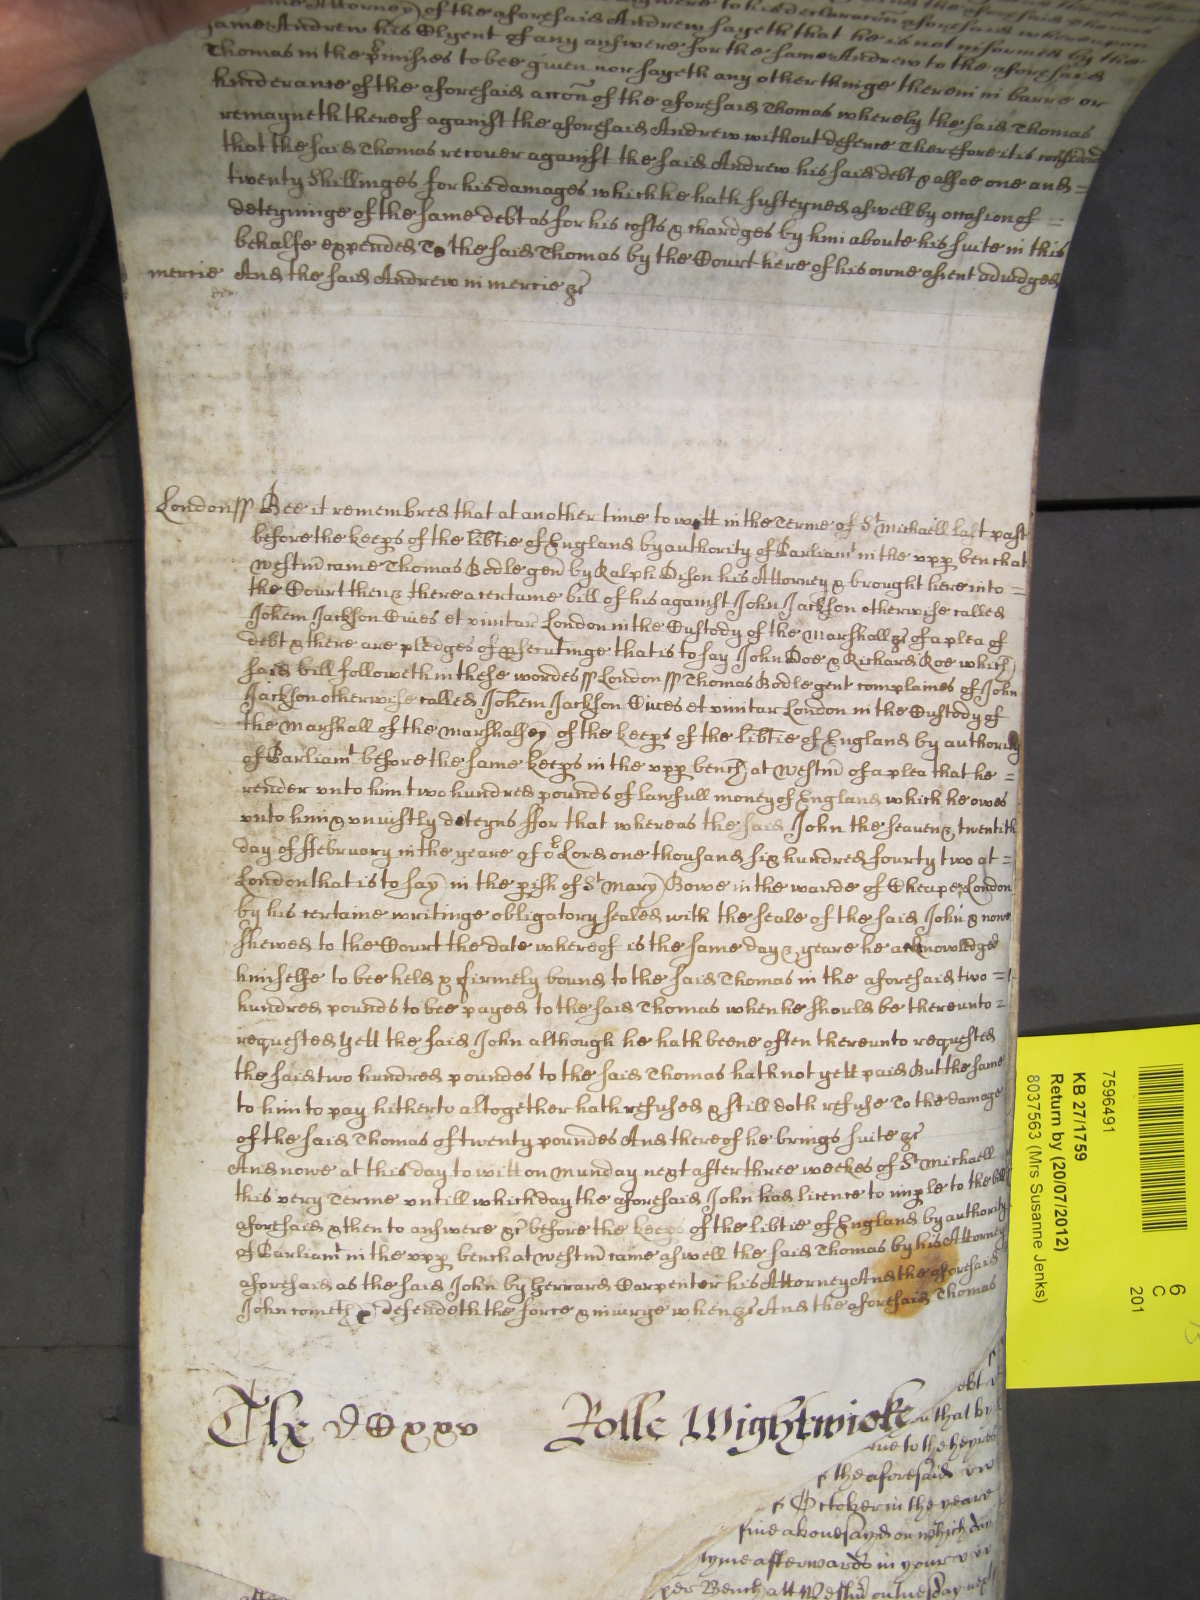 Attorney of the aforesaid Andrew sayeth that he is not informed by the
same Andrew his Clyent of any answere for the same Andrew to the aforesaid
Thomas in the pmisses to bee given nor sayeth any other thinge therein in barre or
hinderance of the aforesaid accon of the aforesaid Thomas whereby the said Thomas
remayneth thereof against the aforesaid Andrew without defence Therefore it is considered
that the said Thomas recover against the said Andrew his said debt & alsoe one and =
twenty Shillinges for his damages which he hath susteyned aswell by occasion of =
deteyninge of the same debt as for his costs & chardges by him aboute his suite in this
behalfe expended To the said Thomas by the Court here of his owne assent adiudged
mercie And the said Andrew in mercie &c
London ss Bee it remembred that at another time to witt in the Terme of St Michaell last past
before the keeps of the libtie of England by authority of Parliamt in the vpp bench at
Westm came Thomas Bodle gen by Ralph Dison his Attorney & brought here into =
the Court then & there a certaine bill of his against John Jackson otherwise called
Johem Jackson Cives et vinitar London in the Custody of the Marshall &c of a plea of
debt & there are pledges of psecutinge that is to say John Doe & Richard Roe which
said bill followeth in these wordes ss London ss Thomas Bodle gent complaines of John
Jackson otherwise called Johem Jackson Cives et vinitar London in the Custody of
the Marshall of the Marshalsey of the keeps of the libtie of England by authority
of Parliamt before the same keeps in the vpp bench at Westm of a plea that he =
render vnto him two hundred pounds of lawfull money of England which he owes
vnto him & vniustly deteyns ffor that whereas the said John the seaven & twentith
day of ffebruary in the yeare of or Lord one thousand six hundred fourty two at =
London that is to say in the pish of St Mary Bowe in the warde of Cheape London
by his certaine writinge obligatory sealed with the seale of the said John & nowe
shewed to the Court the date whereof is the same day & yeare he acknowledged
himselfe to bee held & firmely bound to the said Thomas in the aforesaid two =
hundred pounds to bee payed to the said Thomas when he should be thereunto =
requested yett the said John although he hath beene often thereunto requested
the said two hundred poundes to the said Thomas hath not yett paid But the same
to him to pay hitherto altogether hath refused & still doth refuse To the damage
of the said Thomas of twenty poundes And thereof he brings suite &c
And nowe at this day to witt on Munday next after three weekes of St Michaell
this very Terme vntill which day the aforesaid John had licence to imple to the bill
aforesaid & then to answere &c before the keeps of the libtie of England by authority
of Parliamt in the vpp bench at Westm came aswell the said Thomas by his Attorney
aforesaid as the said John by Gerrard Carpenter his Attorney And the aforesaid
John cometh & defendeth the force & iniurye when &c And the aforesaid Thomas
Rolle Wightwicke
ebt
that by
due to the heyres
the aforesaid
October in the yeare
five abovesayd on which day
tyme afterwards in
per Bench att Westm on tuesday next
7596491
KB 27/1759
Return by (20/07/2012)
8037563 (Mrs Susanne Jenks)
6
C
201